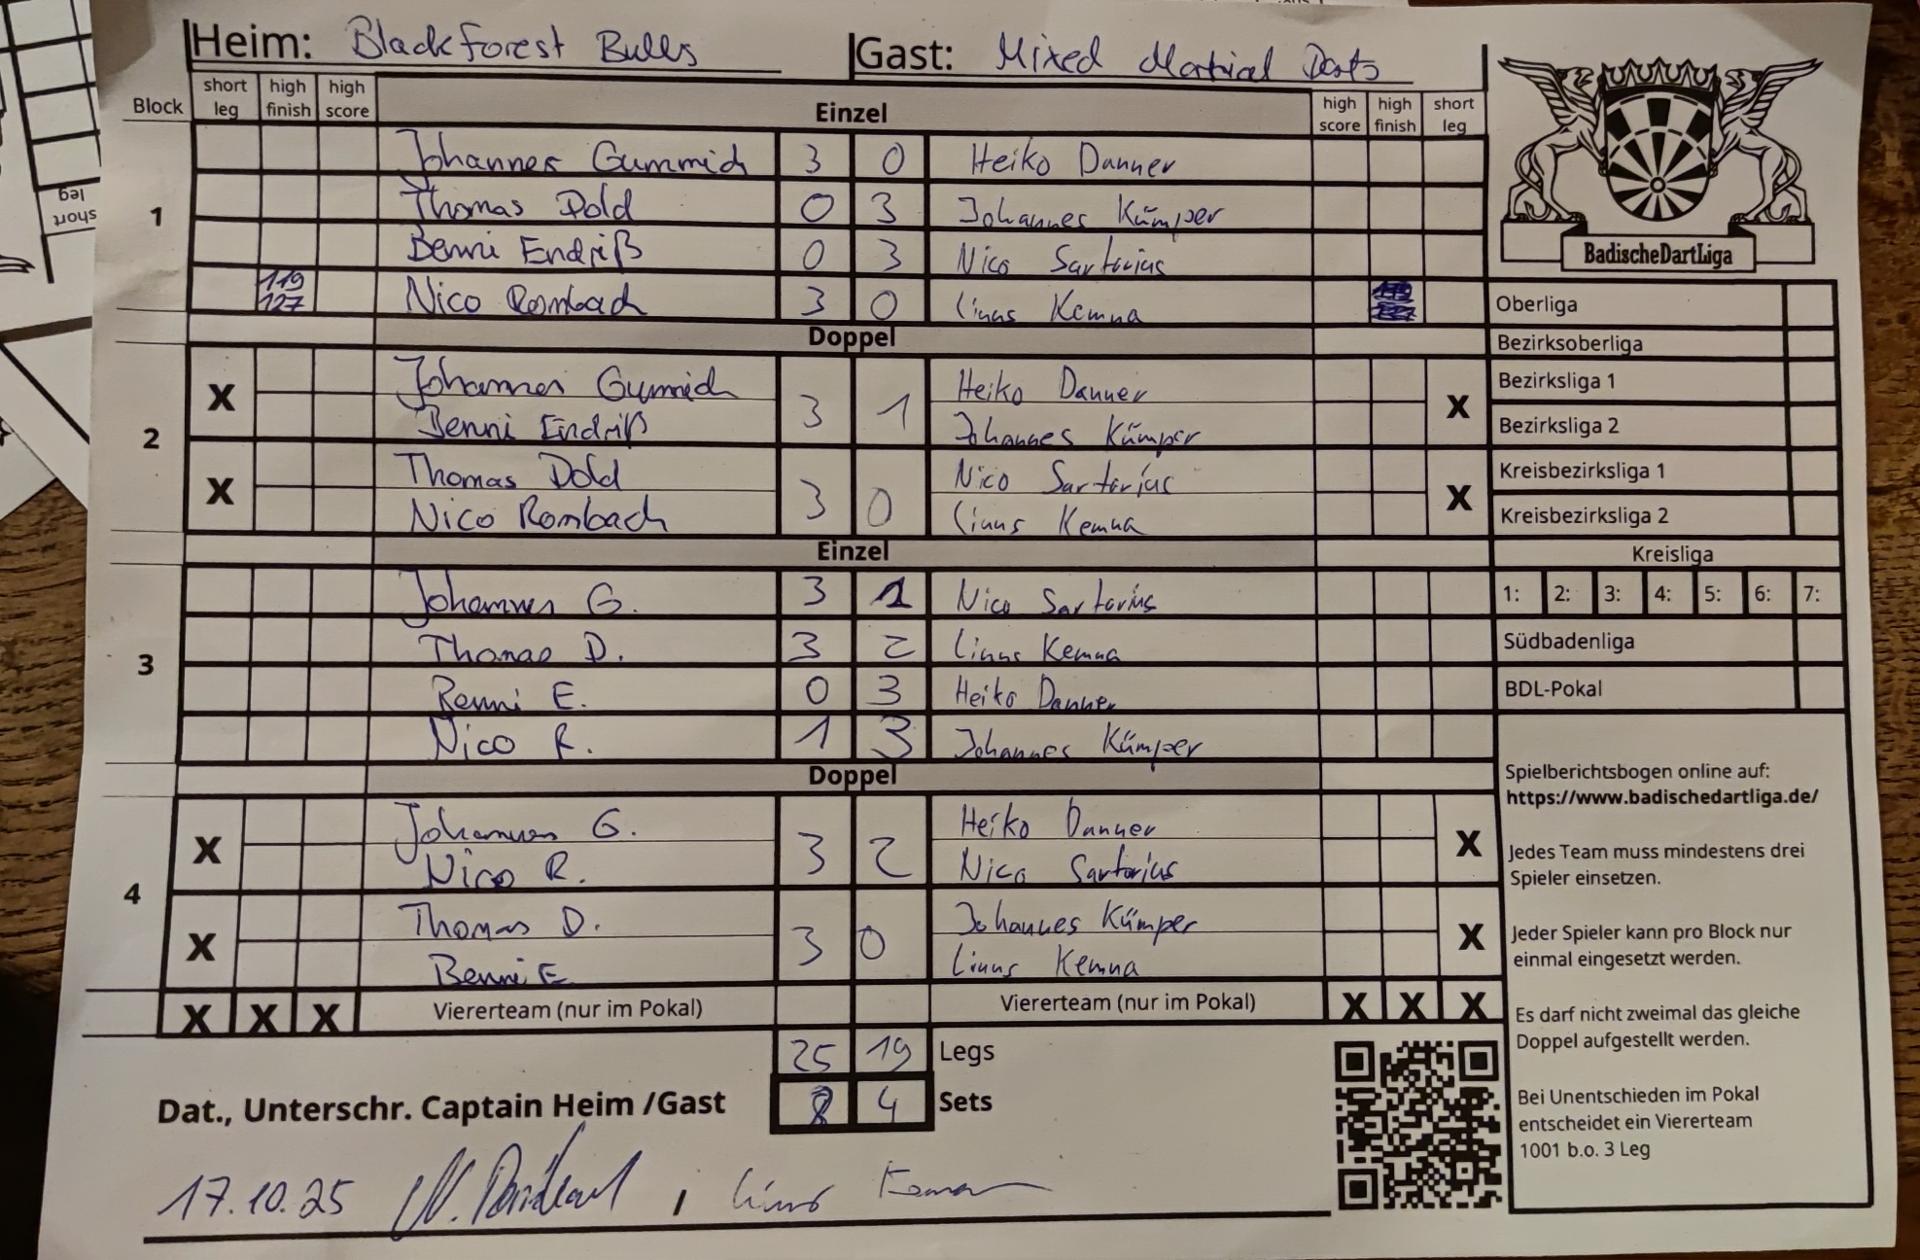 Heim: Blackforest Bulls Gast: Mixed Martial Darts
Block short leg high finish high score Einzel high score high finish short leg
1
Johannes Gummich 3 0 Heiko Danner
Thomas Dold 0 3 Johannes Kümper
Benni Endriß 0 3 Nico Sartorius
119 127 Nico Rombach 3 0 Linus Kemna
Doppel
2
X Johannes Gummich 3 1 Heiko Danner X
Benni Endriß Johannes Kümper
X Thomas Dold 3 0 Nico Sartorius X
Nico Rombach Linus Kemna
Einzel
3
Johannes G. 3 1 Nico Sartorius
Thomas D. 3 2 Linus Kemna
Benni E. 0 3 Heiko Danner
Nico R. 1 3 Johannes Kümper
Doppel
4
X Johannes G. 3 2 Heiko Danner X
Nico R. Nico Sartorius
X Thomas D. 3 0 Johannes Kümper X
Benni E Linus Kemna
X X X Viererteam (nur im Pokal) Viererteam (nur im Pokal) X X X
25 19 Legs
8 4 Sets
Dat., Unterschr. Captain Heim /Gast
17.10.25
BadischeDartLiga
Oberliga
Bezirksoberliga
Bezirksliga 1
Bezirksliga 2
Kreisbezirksliga 1
Kreisbezirksliga 2
Kreisliga
1: 2: 3: 4: 5: 6: 7:
Südbadenliga
BDL-Pokal
Spielberichtsbogen online auf:
https://www.badischedartliga.de/
Jedes Team muss mindestens drei
Spieler einsetzen.
Jeder Spieler kann pro Block nur
einmal eingesetzt werden.
Es darf nicht zweimal das gleiche
Doppel aufgestellt werden.
Bei Unentschieden im Pokal
entscheidet ein Viererteam
1001 b.o. 3 Leg
short
leg